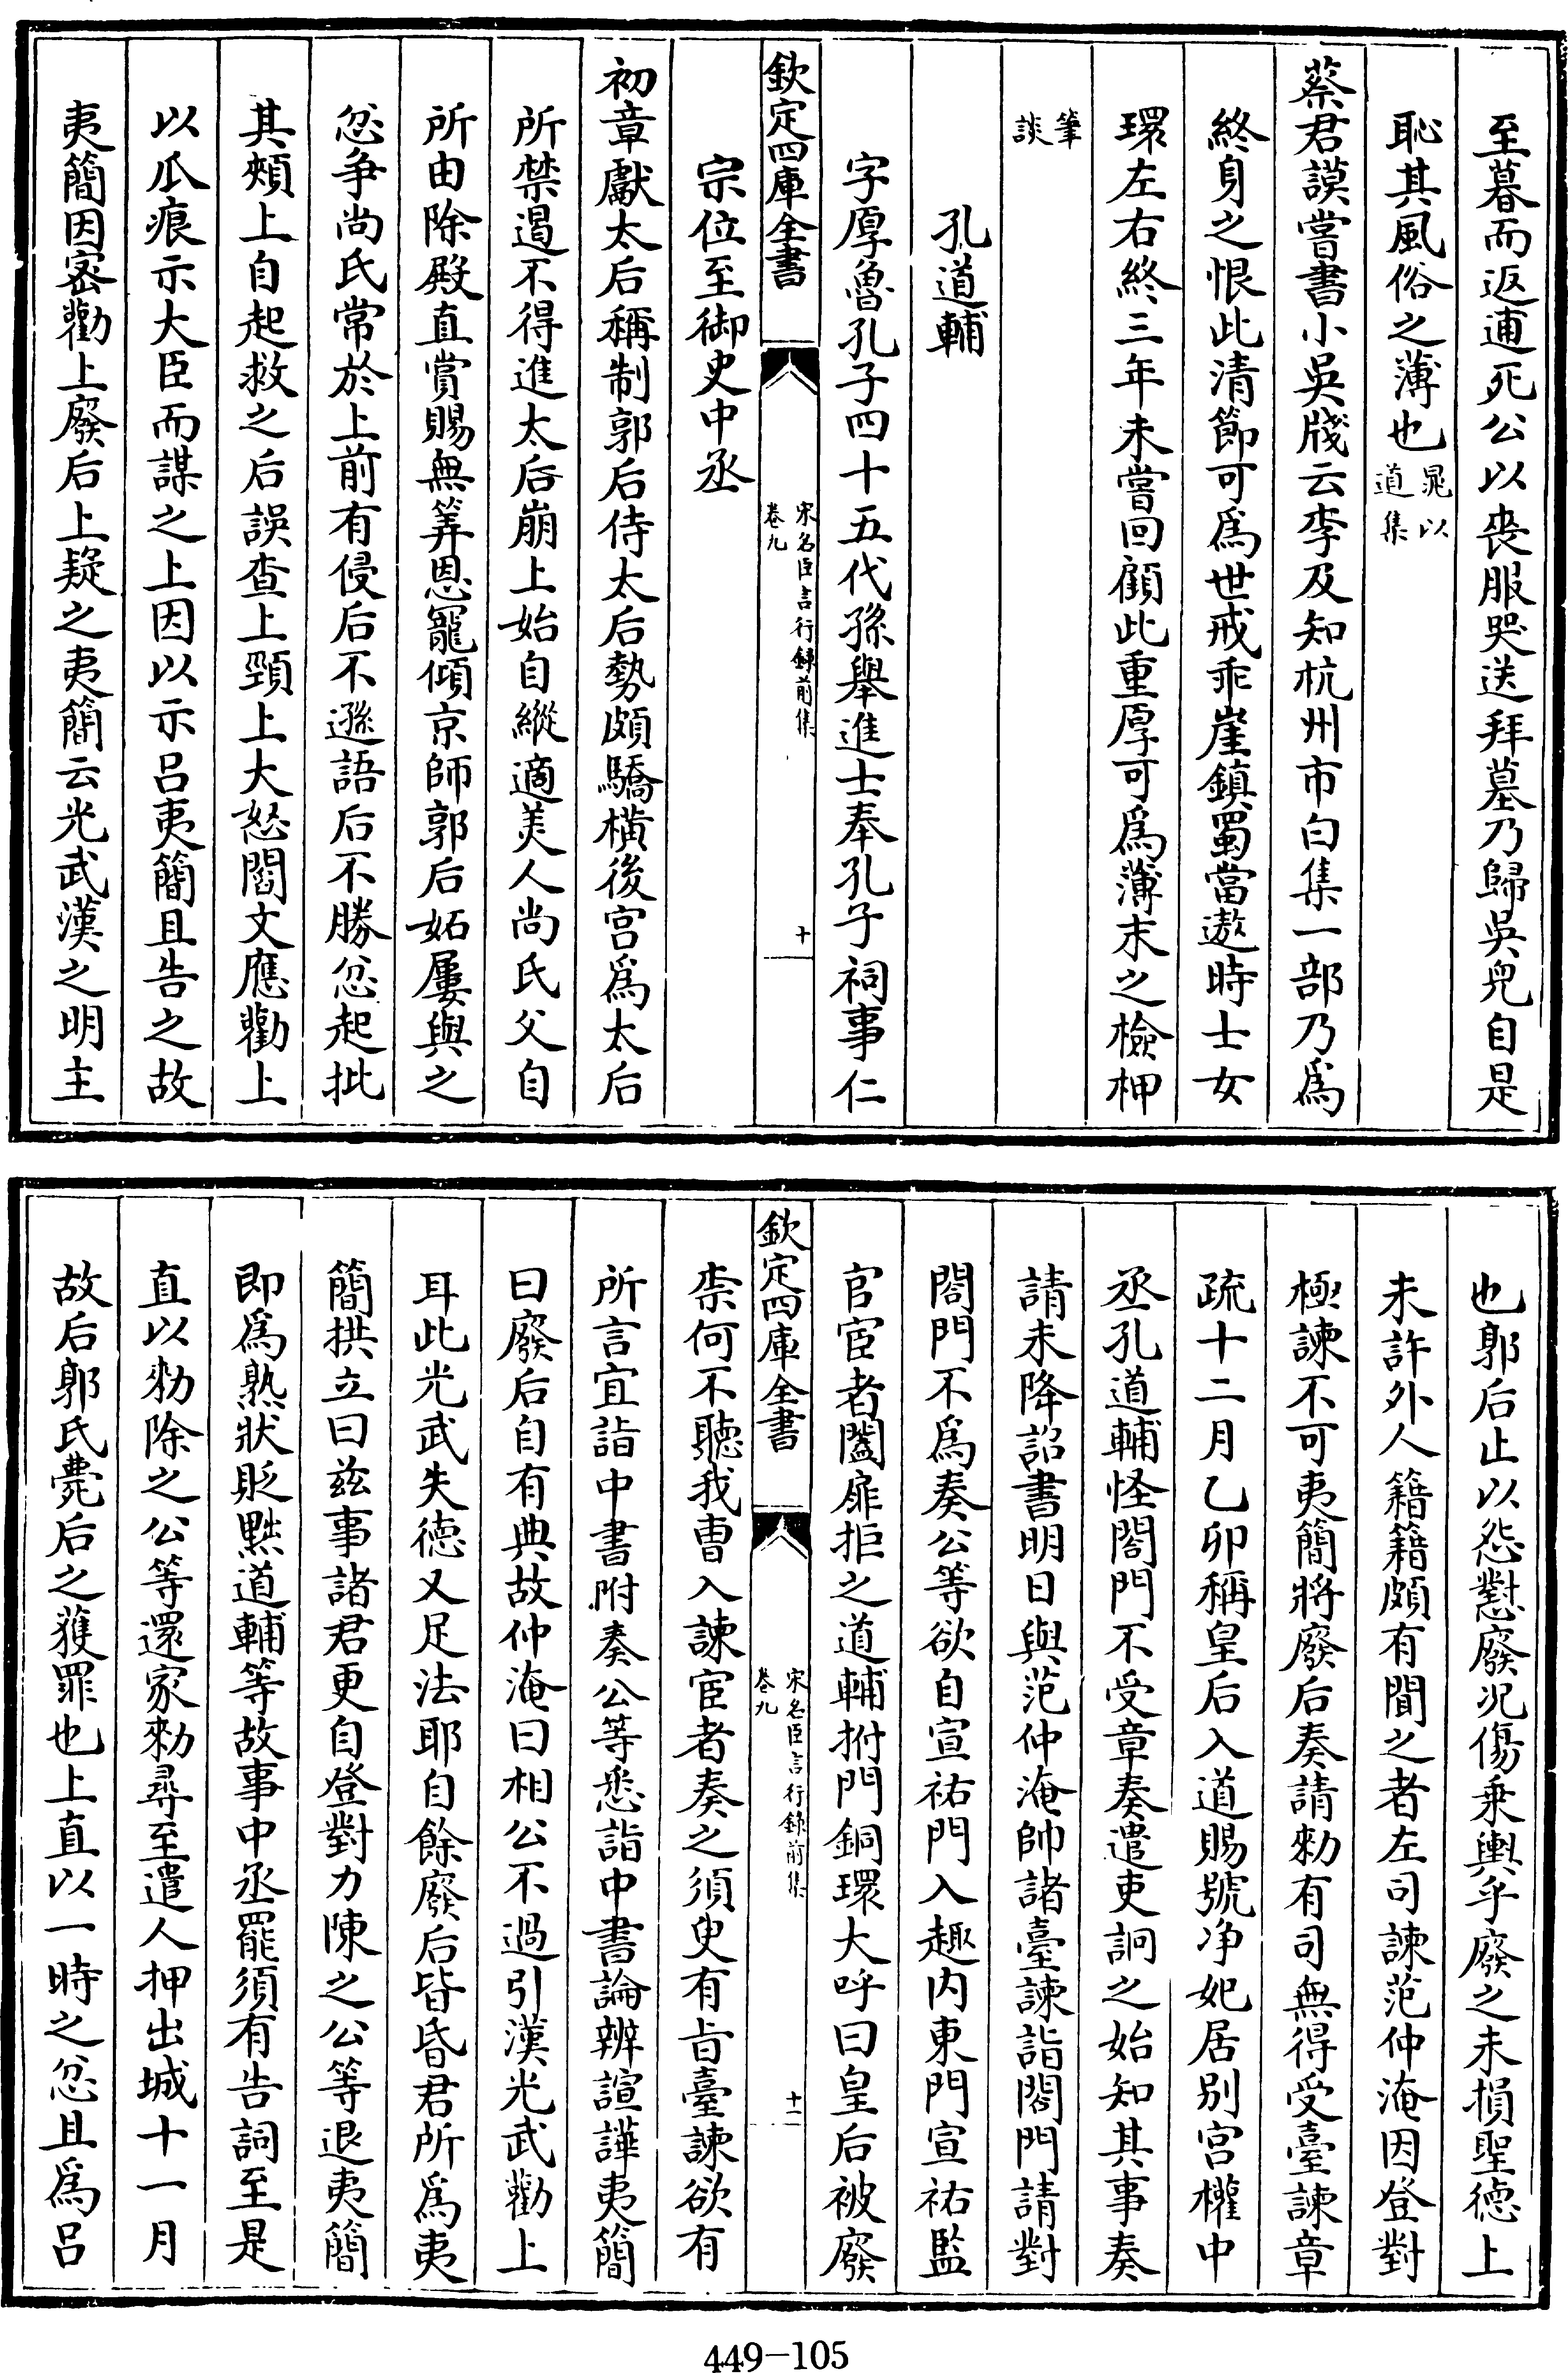 至暮而返逋死公以喪服哭送拜墓乃歸吳兒自是
恥其風俗之薄也晁以道集
蔡君謨嘗書小吳牋云李及知杭州市白集一部乃爲
終身之恨此清節可爲世戒乖崖鎮蜀當遨時士女
環左右終三年未嘗回顧此重厚可爲薄末之檢柙
筆談
孔道輔
字厚魯孔子四十五代孫舉進士奉孔子祠事仁
欽定四庫全書
宋名臣言行錄前集
卷九
十
宗位至御史中丞
初章獻太后稱制郭后侍太后勢頗驕橫後宮爲太后
所禁遏不得進太后崩上始自縱適美人尚氏父自
所由除殿直賞賜無筭恩寵傾京師郭后妬屢與之
忿争尚氏常於上前有侵后不遜語后不勝忿起批
其頰上自起救之后誤查上頸上大怒閻文應勸上
以爪痕示大臣而謀之上因以示呂夷簡且告之故
夷簡因密勸上廢后上疑之夷簡云光武漢之明主
也郭后止以怨懟廢況傷乗輿乎廢之未損聖德上
未許外人籍籍頗有聞之者左司諫范仲淹因登對
極諫不可夷簡將廢后奏請勑有司無得受臺諫章
疏十二月乙卯稱皇后入道賜號净妃居别宮權中
丞孔道輔怪閤門不受章奏遣吏詗之始知其事奏
請未降詔書明日與范仲淹帥諸臺諫詣閤門請對
閤門不爲奏公等欲自宣祐門入趣内東門宣祐監
官宦者闔扉拒之道輔拊門銅環大呼曰皇后被廢
欽定四庫全書
宋名臣言行錄前集
卷九
十一
柰何不聽我曺入諫宦者奏之須臾有㫖臺諫欲有
所言宜詣中書附奏公等悉詣中書論辨諠譁夷簡
曰廢后自有典故仲淹曰相公不過引漢光武勸上
耳此光武失德又足法耶自餘廢后皆昏君所爲夷
簡拱立曰兹事諸君更自登對力陳之公等退夷簡
即爲熟狀貶黜道輔等故事中丞罷須有告詞至是
直以勑除之公等還家勑尋至遣人押出城十一月
故后郭氏薨后之獲罪也上直以一時之忿且爲吕
449-105